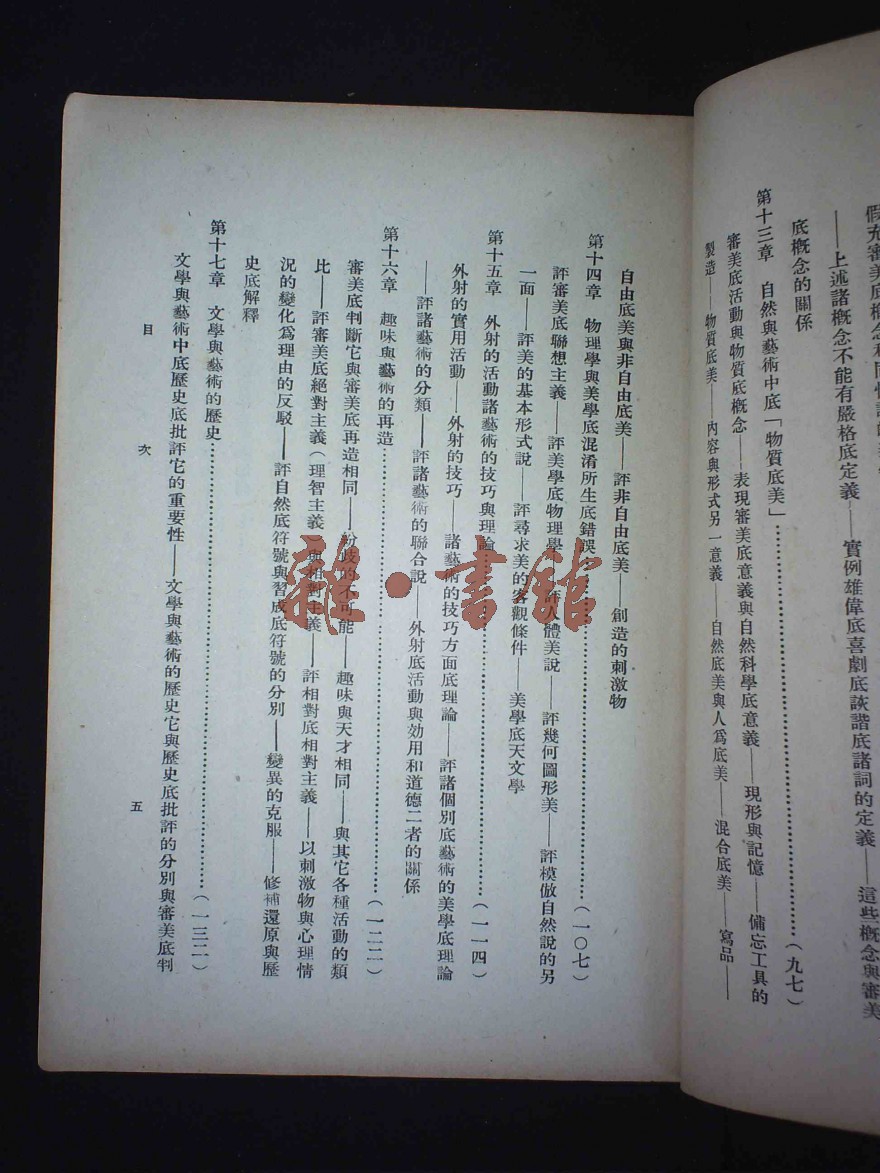 假充審美底概念和同情
——上述諸概念不能有嚴格底定義——實例雄偉底喜劇底詼諧底諸詞的定義——這些概念與審美
底概念的關係
第十三章 自然與藝術中底「物質底美」……(九七)
審美底活動與物質底概念——表現審美底意義與自然科學底意義——現形與記憶——備忘工具的
製造——物質底美——內容與形式另一意義——自然底美與人爲底美——混合底美——寫品——
自由底美與非自由底美——評非自由底美——創造的刺激物
第十四章 物理學與美學底混淆所生底錯誤……(一〇七)
評審美底聯想主義——評美學底物理學——評人體美說——評幾何圖形美——評模倣自然說的另
一面——評美的基本形式說——評尋求美的客觀條件——美學底天文學
第十五章 外射的活動諸藝術的技巧與理論……(一一四)
外射的實用活動——外射的技巧——諸藝術的技巧方面底理論——評諸個別底藝術的美學底理論
——評諸藝術的分類——評諸藝術的聯合說——外射底活動與効用和道德二者的關係
第十六章 趣味與藝術的再造……(一二二)
審美底判斷它與審美底再造相同——紛歧的不可能——趣味與天才相同——與其它各種活動的類
比——評審美底絕對主義(理智主義)與相對主義——評相對底相對主義——以刺激物與心理情
況的變化爲理由的反駁——評自然底符號與習成底符號的分別——變異的克服——修補還原與歷
史底解釋
第十七章 文學與藝術的歷史……(一三二)
文學與藝術中底歷史底批評它的重要性——文學與藝術的歷史它與歷史底批評的分別與審美底判
目次 五
雜·書館